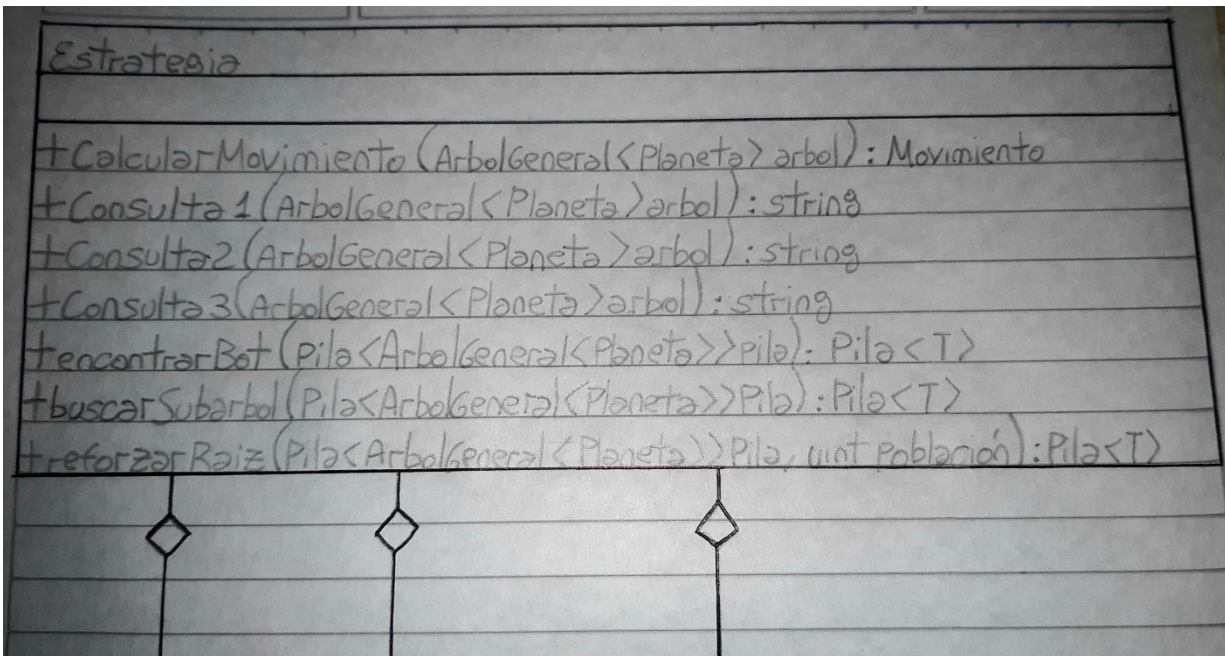 Estrategia
+CalcularMovimiento(ArbolGeneral<Planeta>arbol):Movimiento
+Consulta1(ArbolGeneral<Planeta>arbol):string
+Consulta2(ArbolGeneral<Planeta>arbol):string
+Consulta3(ArbolGeneral<Planeta>arbol):string
+encontrarBot(Pila<ArbolGeneral<Planeta>>Pila):Pila<T>
+buscarSubarbol(Pila<ArbolGeneral<Planeta>>Pila):Pila<T>
+reforzarRaiz(Pila<ArbolGeneral<Planeta>>Pila, uint Población):Pila<T>